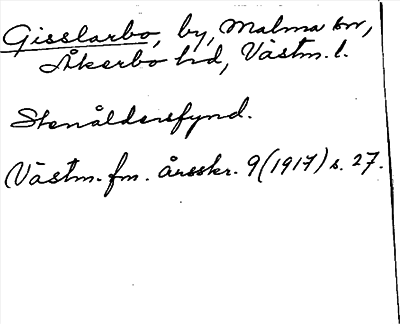 Gisslarbo, by, Malma sn,
Åkerbo hd, Västm. l.
Stenåldersfynd.
Västm. fm. årsskr. 9 (1917) s. 27.